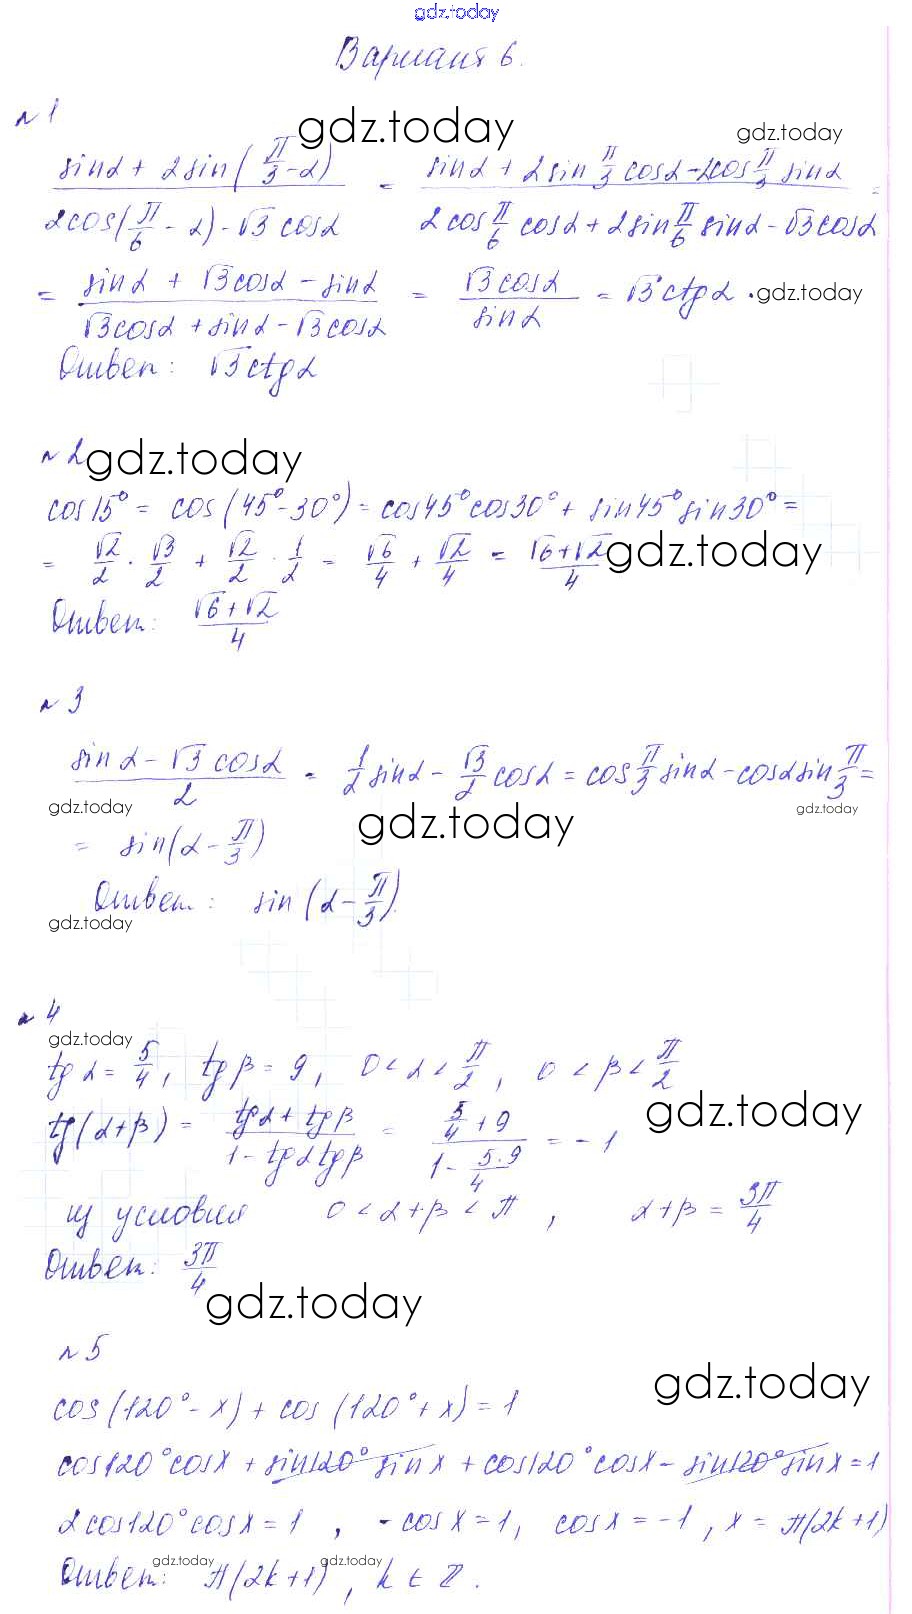 gdz.today
Вариант 6.
№1
gdz.today gdz.today
(sinα + 2sin(π/3 - α)) / (2cos(π/6 - α) - √3 cosα) = (sinα + 2sin π/3 cosα - 2cos π/3 sinα) / (2cos π/6 cosα + 2sin π/6 sinα - √3 cosα) =
= (sinα + √3cosα - sinα) / (√3cosα + sinα - √3cosα) = √3cosα / sinα = √3 ctgα . gdz.today
Ответ: √3 ctgα
№2 gdz.today
cos15° = cos(45° - 30°) = cos45°cos30° + sin45°sin30° =
= √2/2 · √3/2 + √2/2 · 1/2 = √6/4 + √2/4 = (√6+√2)/4 gdz.today
Ответ: (√6+√2)/4
№3
(sinα - √3 cosα) / 2 = 1/2 sinα - √3/2 cosα = cos π/3 sinα - cosα sin π/3 =
gdz.today gdz.today gdz.today
= sin(α - π/3)
Ответ: sin(α - π/3).
gdz.today
№4
gdz.today
tgα = 5/4, tgβ = 9, 0 < α < π/2, 0 < β < π/2
gdz.today
tg(α+β) = (tgα + tgβ) / (1 - tgαtgβ) = (5/4 + 9) / (1 - 5·9/4) = -1
из условия 0 < α+β < π, α+β = 3π/4
Ответ: 3π/4
gdz.today
№5
gdz.today
cos(120° - x) + cos(120° + x) = 1
cos120°cosx + sin120° sinx + cos120°cosx - sin120°sinx = 1
2cos120°cosx = 1, -cosx = 1, cosx = -1, x = π(2k+1)
gdz.today gdz.today
Ответ: π(2k+1), k ∈ Z.